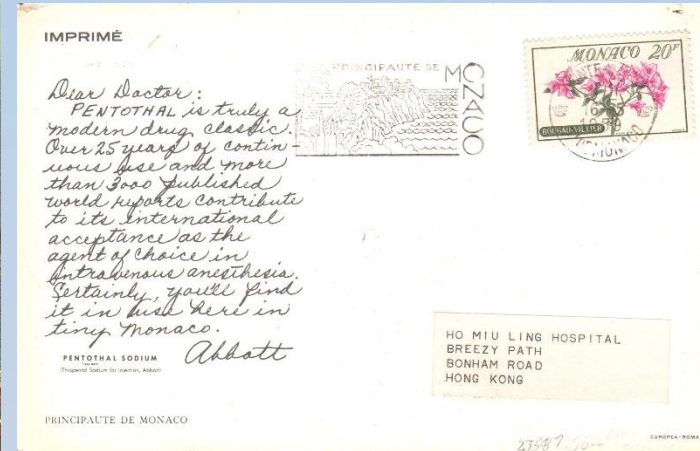 IMPRIMÉ
Dear Doctor:
PENTOTHAL is truly a
modern drug classic.
Over 25 years of contin-
uous use and more
than 3000 published
world reports contribute
to its international
acceptance as the
agent of choice in
intravenous anesthesia.
Certainly, you'll find
it in use here in
tiny Monaco.
Abbott
PENTOTHAL SODIUM
(Thiopental Sodium for Injection, Abbott)
PRINCIPAUTE DE MONACO
PRINCIPAUTÉ DE
MONACO
MONACO 20F
BOUGAINVILLIER
HO MIU LING HOSPITAL
BREEZY PATH
BONHAM ROAD
HONG KONG
EUROPEA-ROMA